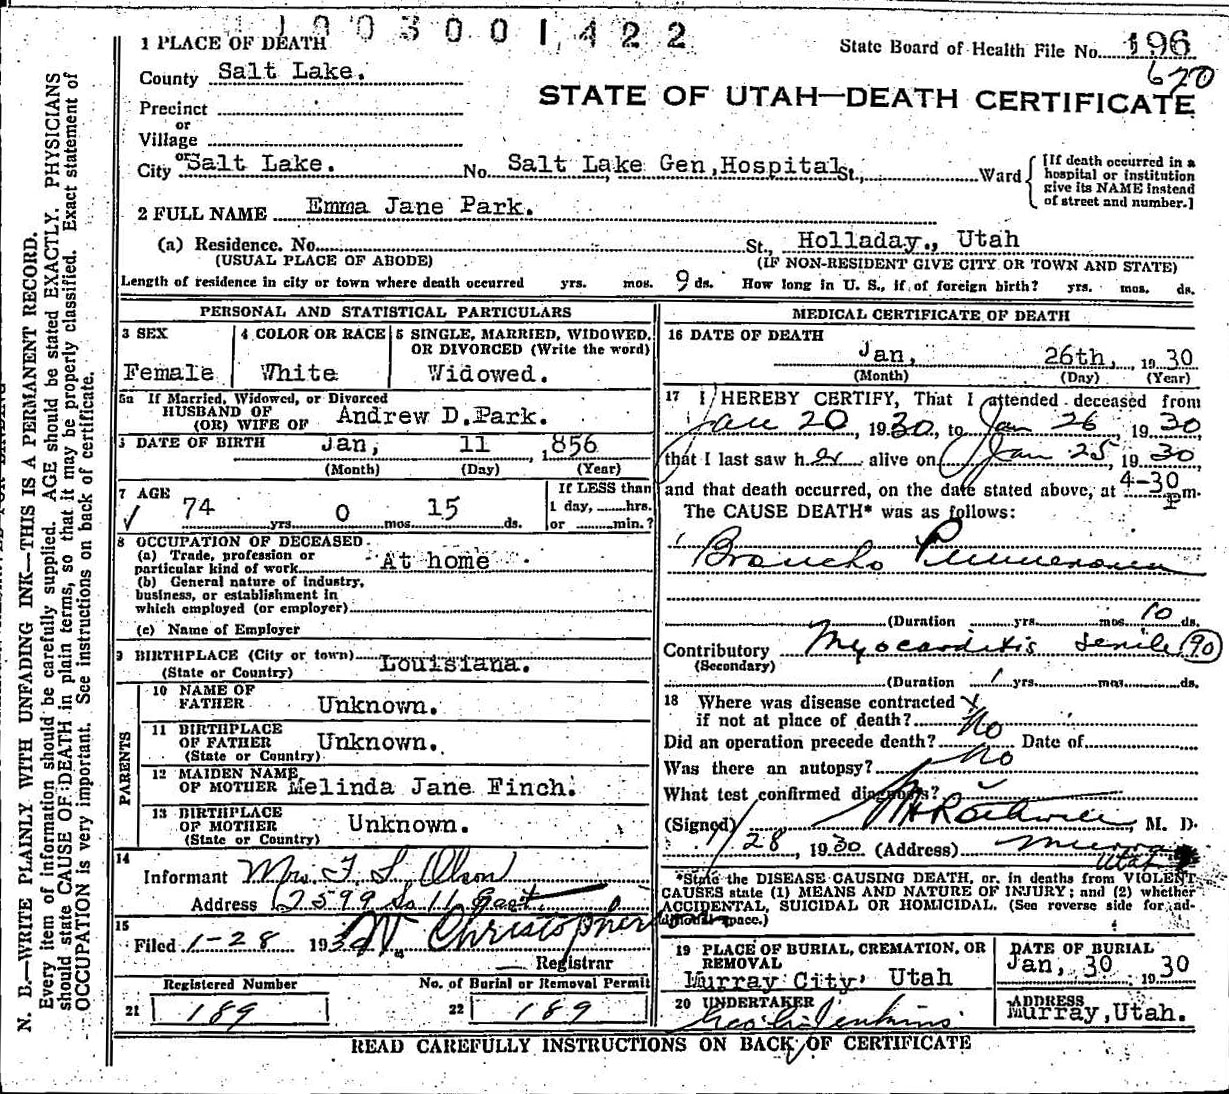 1003001422
1 PLACE OF DEATH
State Board of Health File No. 196
620
County Salt Lake.
STATE OF UTAH—DEATH CERTIFICATE
Precinct
or
Village
or
City Salt Lake. No. Salt Lake Gen, Hospital St., Ward
[If death occurred in a
hospital or institution
give its NAME instead
of street and number.]
2 FULL NAME Emma Jane Park.
(a) Residence. No. St., Holladay., Utah
(USUAL PLACE OF ABODE) (IF NON-RESIDENT GIVE CITY OR TOWN AND STATE)
Length of residence in city or town where death occurred yrs. mos. 9 ds. How long in U. S., if of foreign birth? yrs. mos. ds.
PERSONAL AND STATISTICAL PARTICULARS
3 SEX
Female
4 COLOR OR RACE
White
5 SINGLE, MARRIED, WIDOWED,
OR DIVORCED (Write the word)
Widowed.
5a If Married, Widowed, or Divorced
HUSBAND OF
(OR) WIFE OF Andrew D.Park.
DATE OF BIRTH Jan, 11 ,856
(Month) (Day) (Year)
7 AGE
74 yrs. 0 mos. 15 ds.
If LESS than
1 day, hrs.
or min.?
8 OCCUPATION OF DECEASED
(a) Trade, profession or
particular kind of work At home
(b) General nature of industry,
business, or establishment in
which employed (or employer)
(c) Name of Employer
9 BIRTHPLACE (City or town)
(State or Country) Louisiana.
PARENTS
10 NAME OF
FATHER Unknown.
11 BIRTHPLACE
OF FATHER Unknown.
(State or Country)
12 MAIDEN NAME
OF MOTHER Melinda Jane Finch.
13 BIRTHPLACE
OF MOTHER Unknown.
(State or Country)
14
Informant Mrs. Olson
Address 2599 So 11 East
15
Filed 1-28 1930 W. Christopherson
Registrar
Registered Number
21 189
No. of Burial or Removal Permit
22 189
MEDICAL CERTIFICATE OF DEATH
16 DATE OF DEATH
Jan, 26th, 1930
(Month) (Day) (Year)
17 I HEREBY CERTIFY, That I attended deceased from
Jan 20, 1930, to Jan 26, 1930,
that I last saw her alive on Jan 25, 1930,
and that death occurred, on the date stated above, at 4-30 P m.
The CAUSE DEATH* was as follows:
Broncho Pneumonia
(Duration yrs. mos. 10 ds.
Contributory Myocarditis senile 90
(Secondary)
(Duration 1 yrs. mos. ds.
18 Where was disease contracted
if not at place of death?
Did an operation precede death? No Date of
Was there an autopsy? No
What test confirmed diagnosis?
(Signed) M. D.
1/28, 1930 (Address) Murray
Utah
*State the DISEASE CAUSING DEATH, or, in deaths from VIOLENT
CAUSES state (1) MEANS AND NATURE OF INJURY; and (2) whether
ACCIDENTAL, SUICIDAL OR HOMICIDAL. (See reverse side for ad-
ditional space.)
19 PLACE OF BURIAL, CREMATION, OR
REMOVAL
Murray City, Utah
DATE OF BURIAL
Jan, 30 1930
20 UNDERTAKER
Jenkins
ADDRESS
Murray, Utah.
READ CAREFULLY INSTRUCTIONS ON BACK OF CERTIFICATE
N. B.—WRITE PLAINLY WITH UNFADING INK—THIS IS A PERMANENT RECORD.
Every item of information should be carefully supplied. AGE should be stated EXACTLY. PHYSICIANS
should state CAUSE OF DEATH in plain terms, so that it may be properly classified. Exact statement of
OCCUPATION is very important. See instructions on back of certificate.